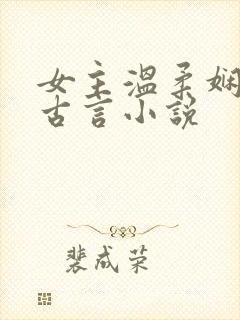 女主温柔娴
古言小说
裴成荣